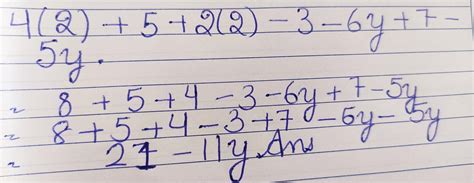 4(2) + 5 + 2(2) - 3 - 6y + 7 -
5y.
= 8 + 5 + 4 - 3 - 6y + 7 - 5y
= 8 + 5 + 4 - 3 + 7 - 6y - 5y
= 21 - 11y Ans